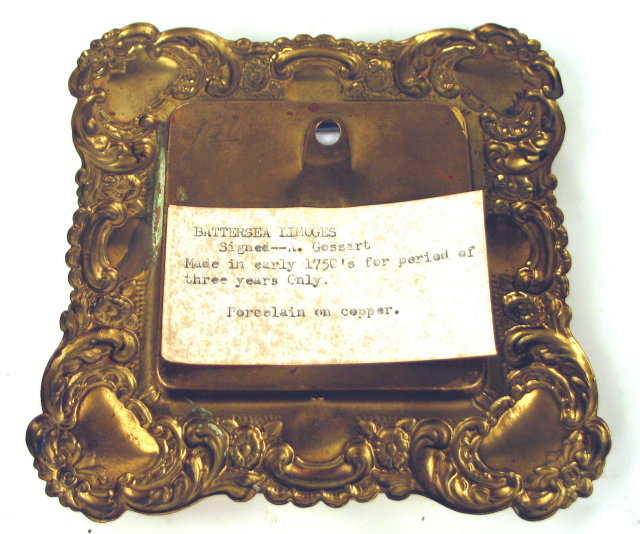 BATTERSEA LIMOGES
Signed--A. Gossart
Made in early 1750's for period of
three years Only.
Porcelain on copper.